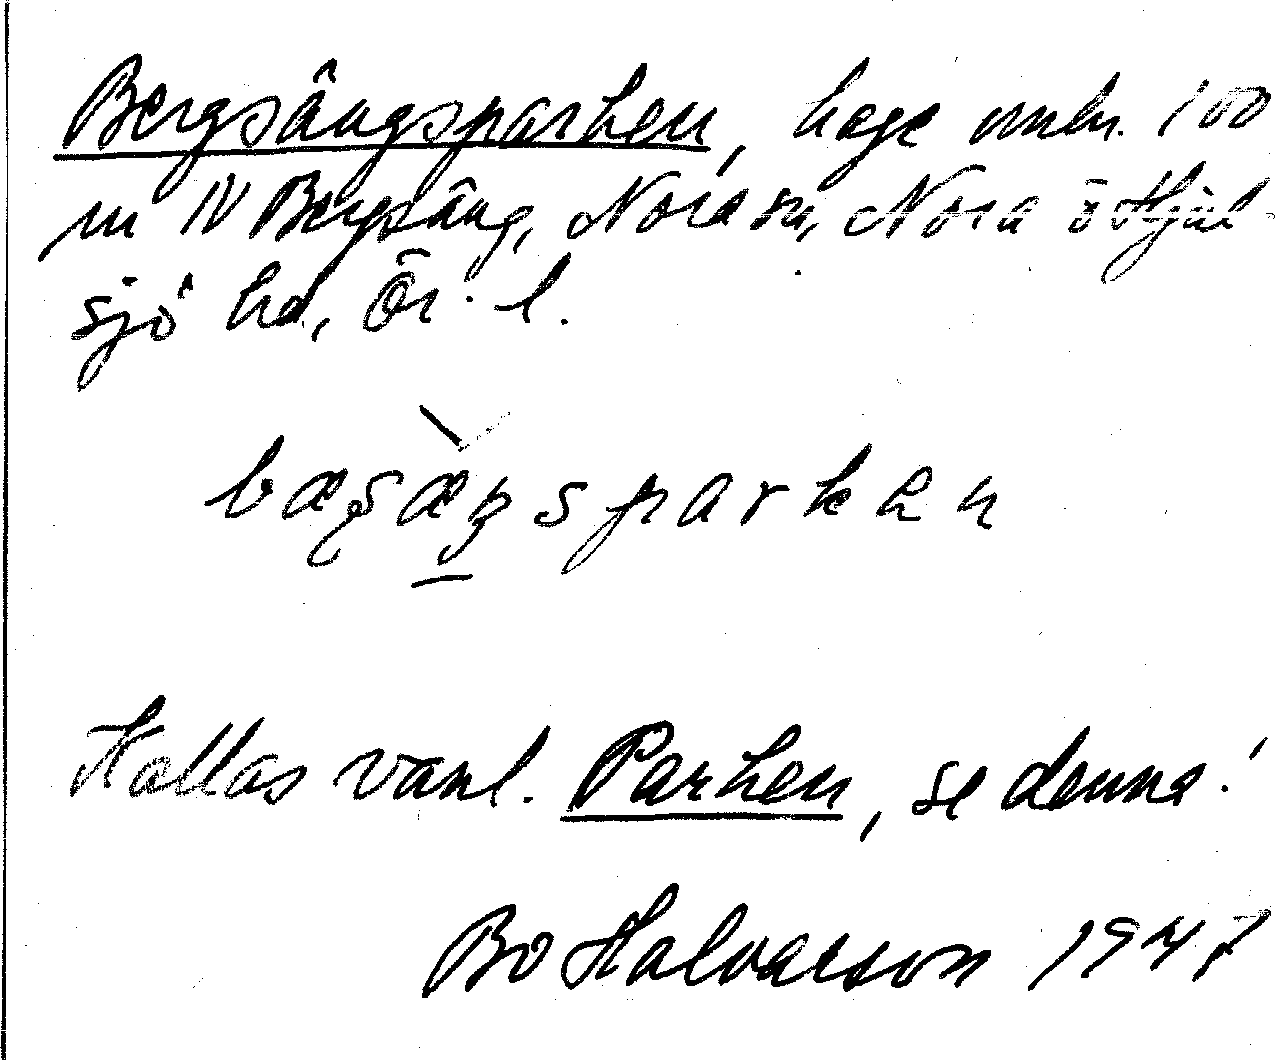 Bergsängsparken, hage omkr. 100
m N Bergsäng, Nora sn, Nora o Hjul-
sjö hd, Ör. l.
bæʂæŋsparkən
Kallas vanl. Parken, se denna!
Bo Halvarson 1947